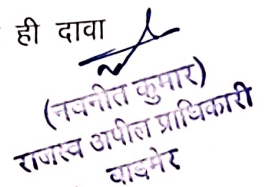 ही दावा
(नवनीत कुमार)
राजस्व अपील प्राधिकारी
बाडमेर